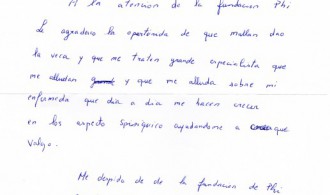 A la atencion de la fundacion Phi
Le agradesco la oportunidad de que mallan dao
la veca y que me traten grande especialista que
me alludan y que me alluda sobre mi
enfermeda que dia a dia me hacen crecer
en los aspecto ayudandome a que
valgo.
Me despido de de la fundacion de Phi